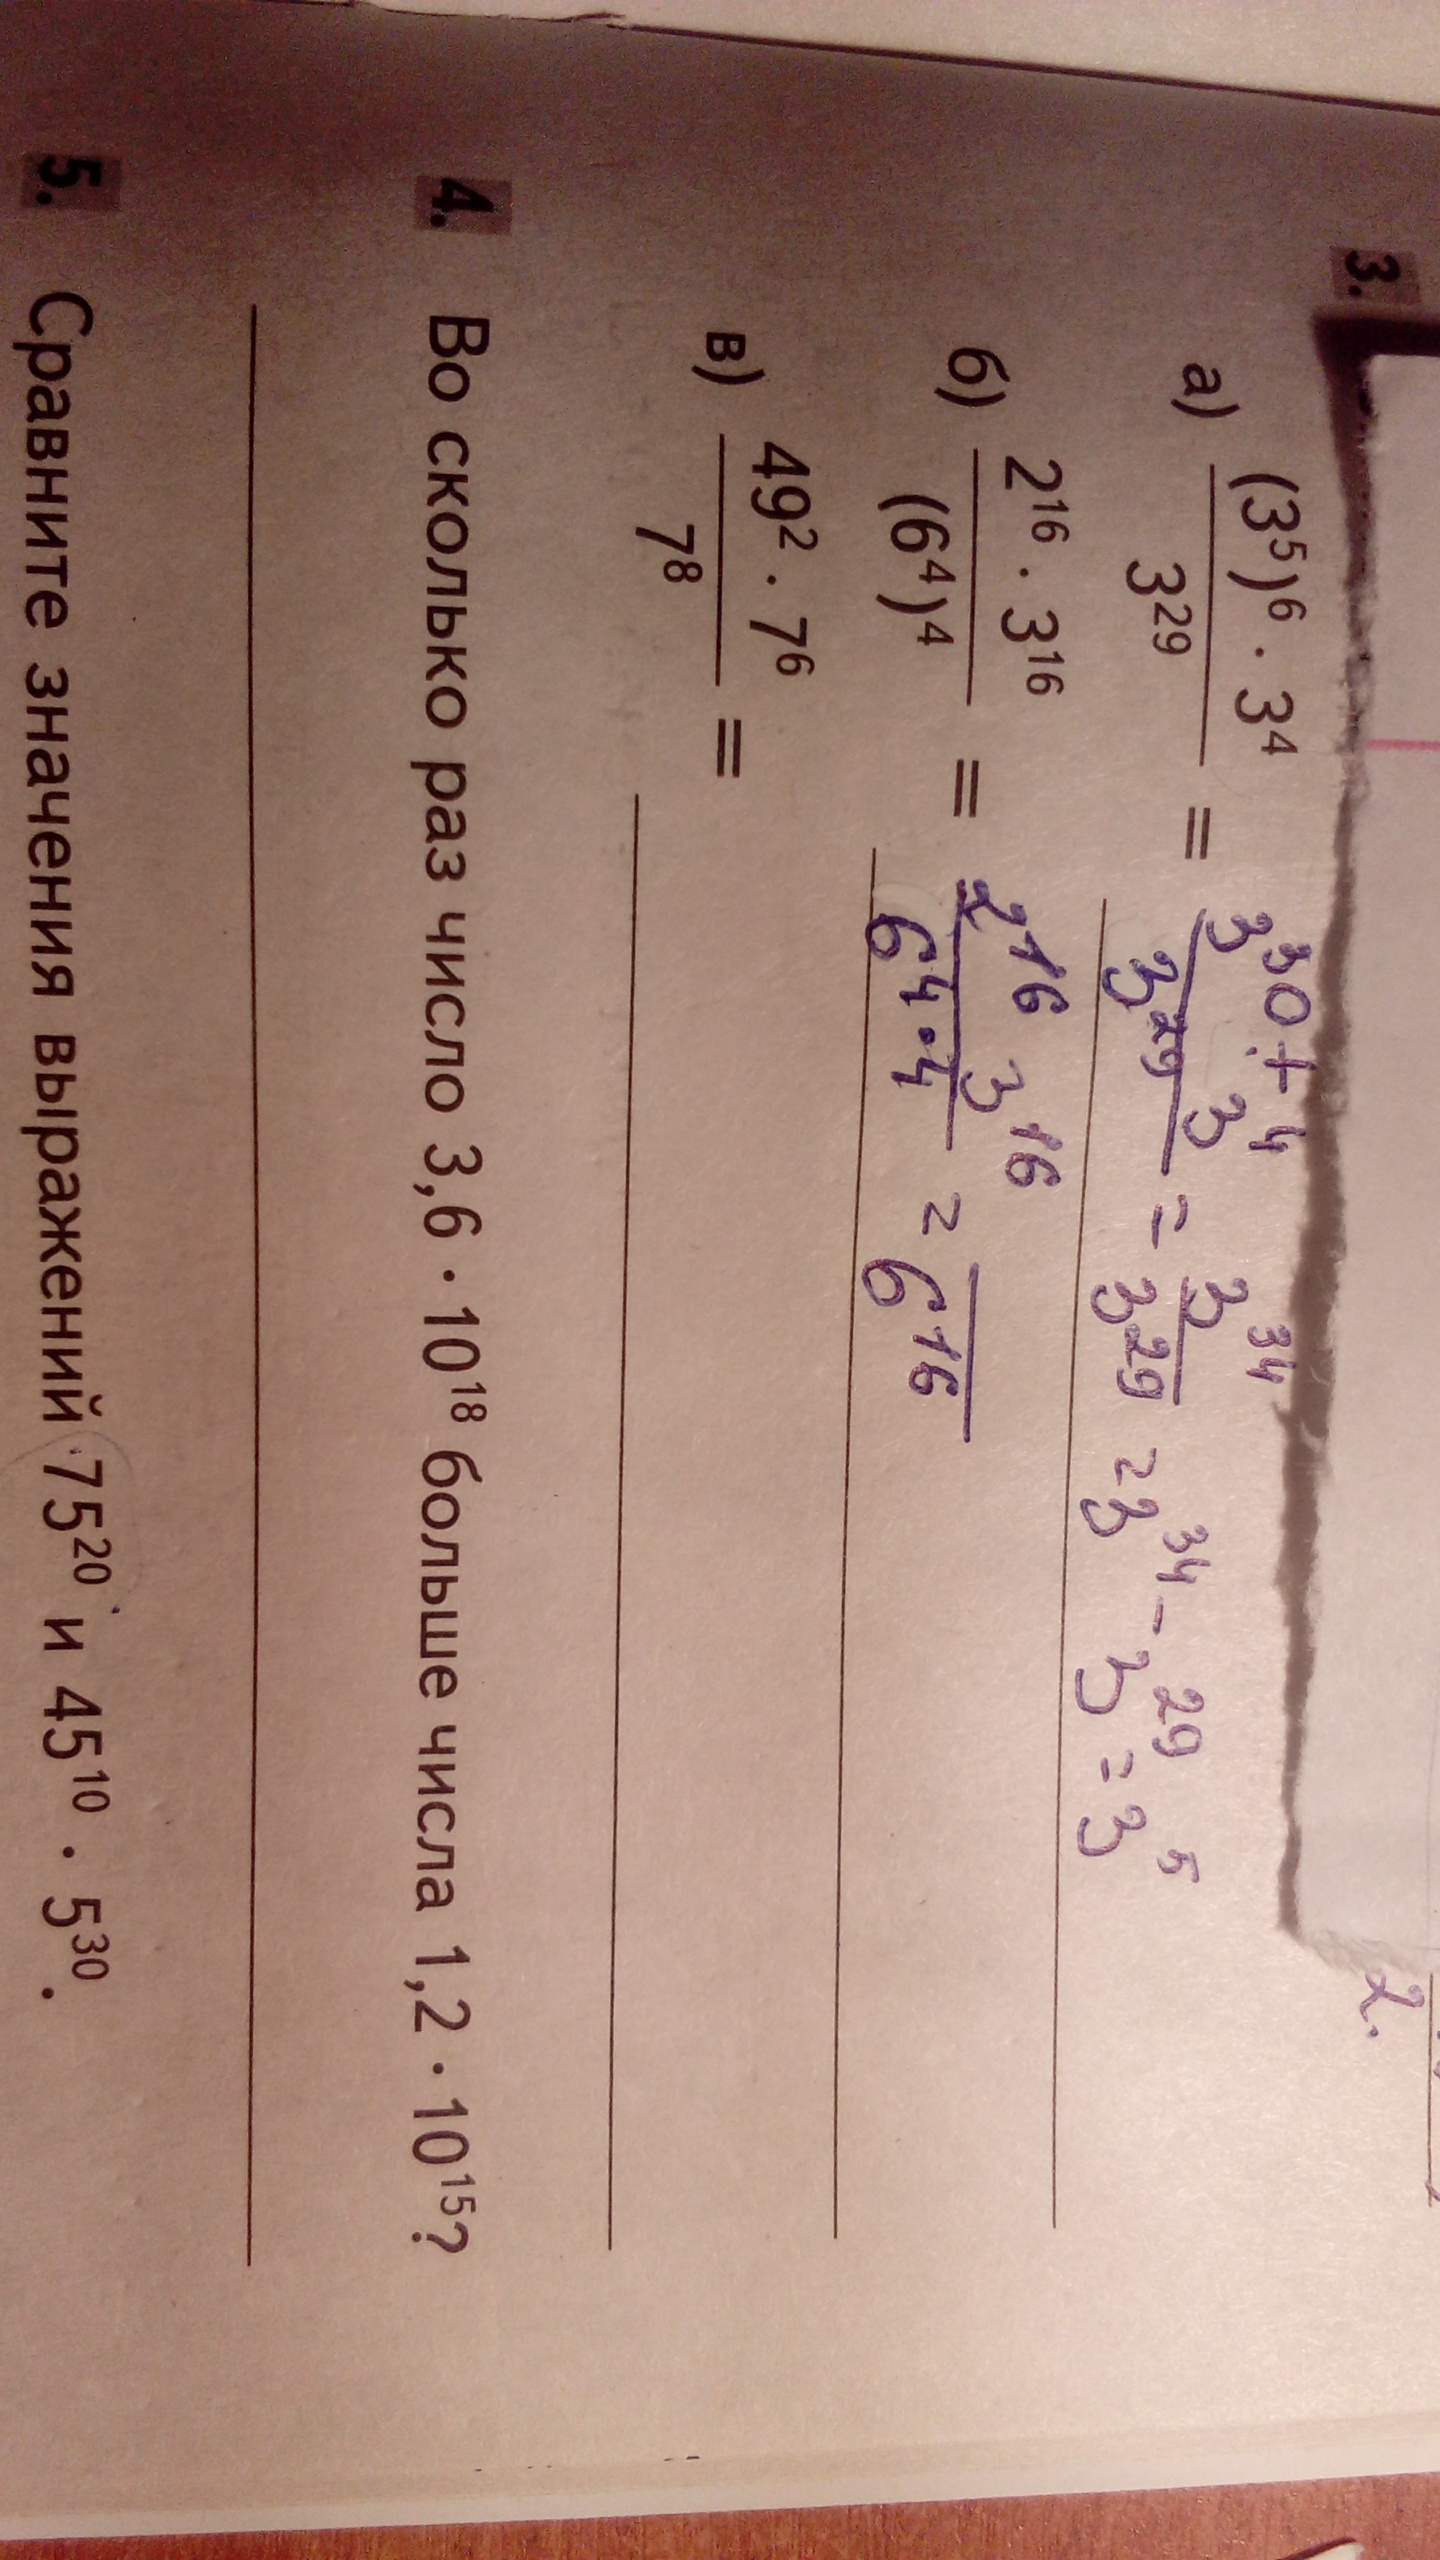 2.
3.
а) (3⁵)⁶ · 3⁴ / 3²⁹ = 3³⁰ + 3⁴ / 3²⁹ = 3³⁴ / 3²⁹ = 3³⁴ - 3²⁹ = 3⁵
б) 2¹⁶ · 3¹⁶ / (6⁴)⁴ = 2¹⁶ 3¹⁶ / 6⁴·⁴ = / 6¹⁶
в) 49² · 7⁶ / 7⁸ =
4. Во сколько раз число 3,6 · 10¹⁸ больше числа 1,2 · 10¹⁵?
5. Сравните значения выражений 75²⁰ и 45¹⁰ · 5³⁰.